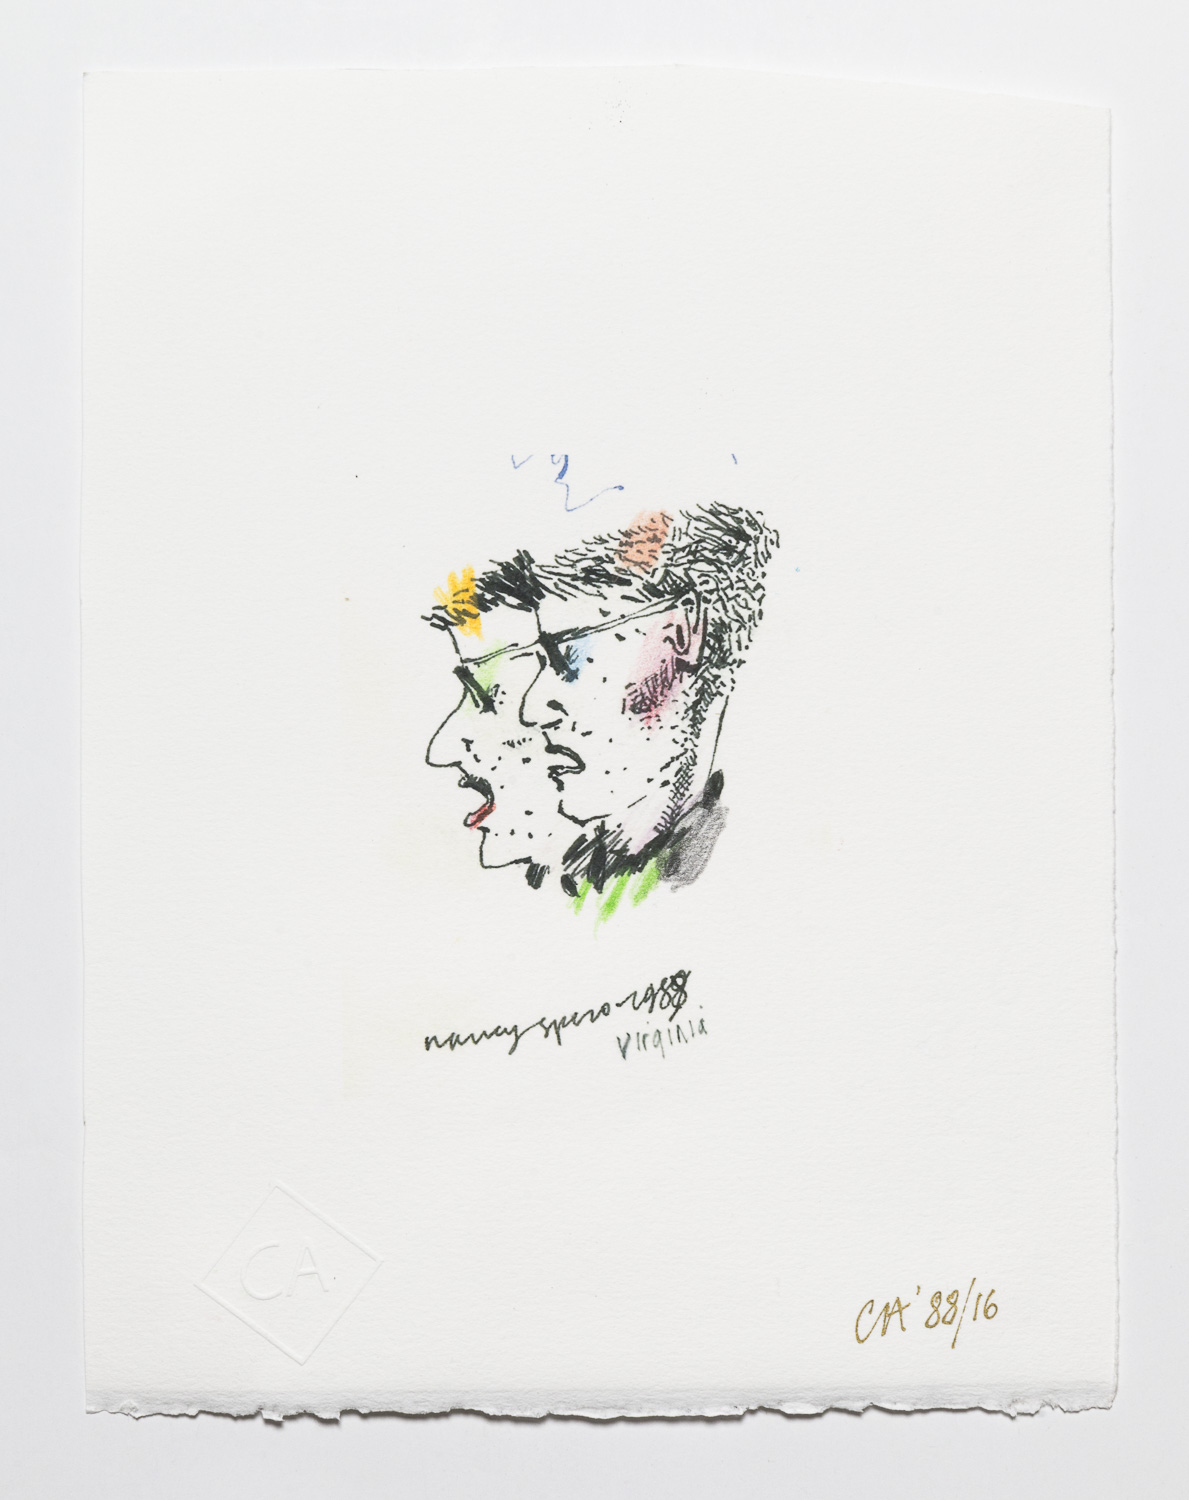 nancy spero - 1988
Virginia
CA
CA '88/16